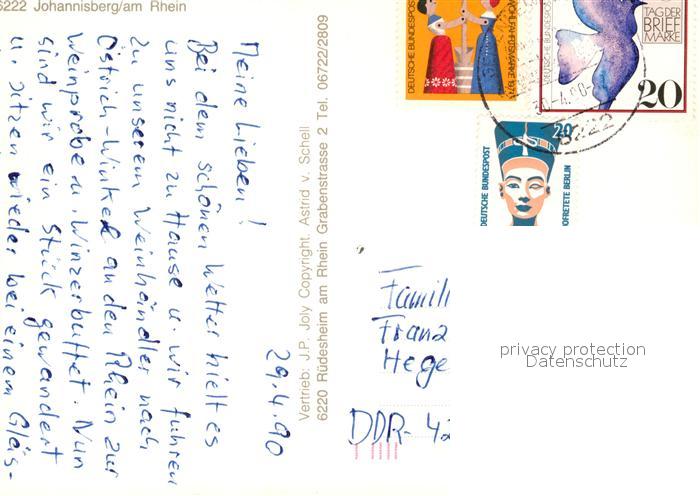 6222 Johannisberg/am Rhein
29.4.90
Meine Lieben!
Bei dem schönen Wetter hielt es
uns nicht zu Hause u. wir fuhren
zu unserem Weinhändler nach
Östrich-Winkel an den Rhein zur
Weinprobe u. Winzerbuffet. Nun
sind wir ein Stück gewandert
u. sitzen wieder bei einem Gläs-
Vertrieb: J.P. Joly Copyright. Astrid v. Schell
6220 Rüdesheim am Rhein Grabenstrasse 2 Tel. 06722/2809
DEUTSCHE BUNDESPOST
WOHLFAHRTSMARKE 1971
DEUTSCHE BUNDESPOST
TAG DER
BRIEF
MARKE
20
30.-4.90
6222
20
DEUTSCHE BUNDESPOST
NOFRETETE BERLIN
Famili
Franz
Hege
DDR-42
privacy protection
Datenschutz